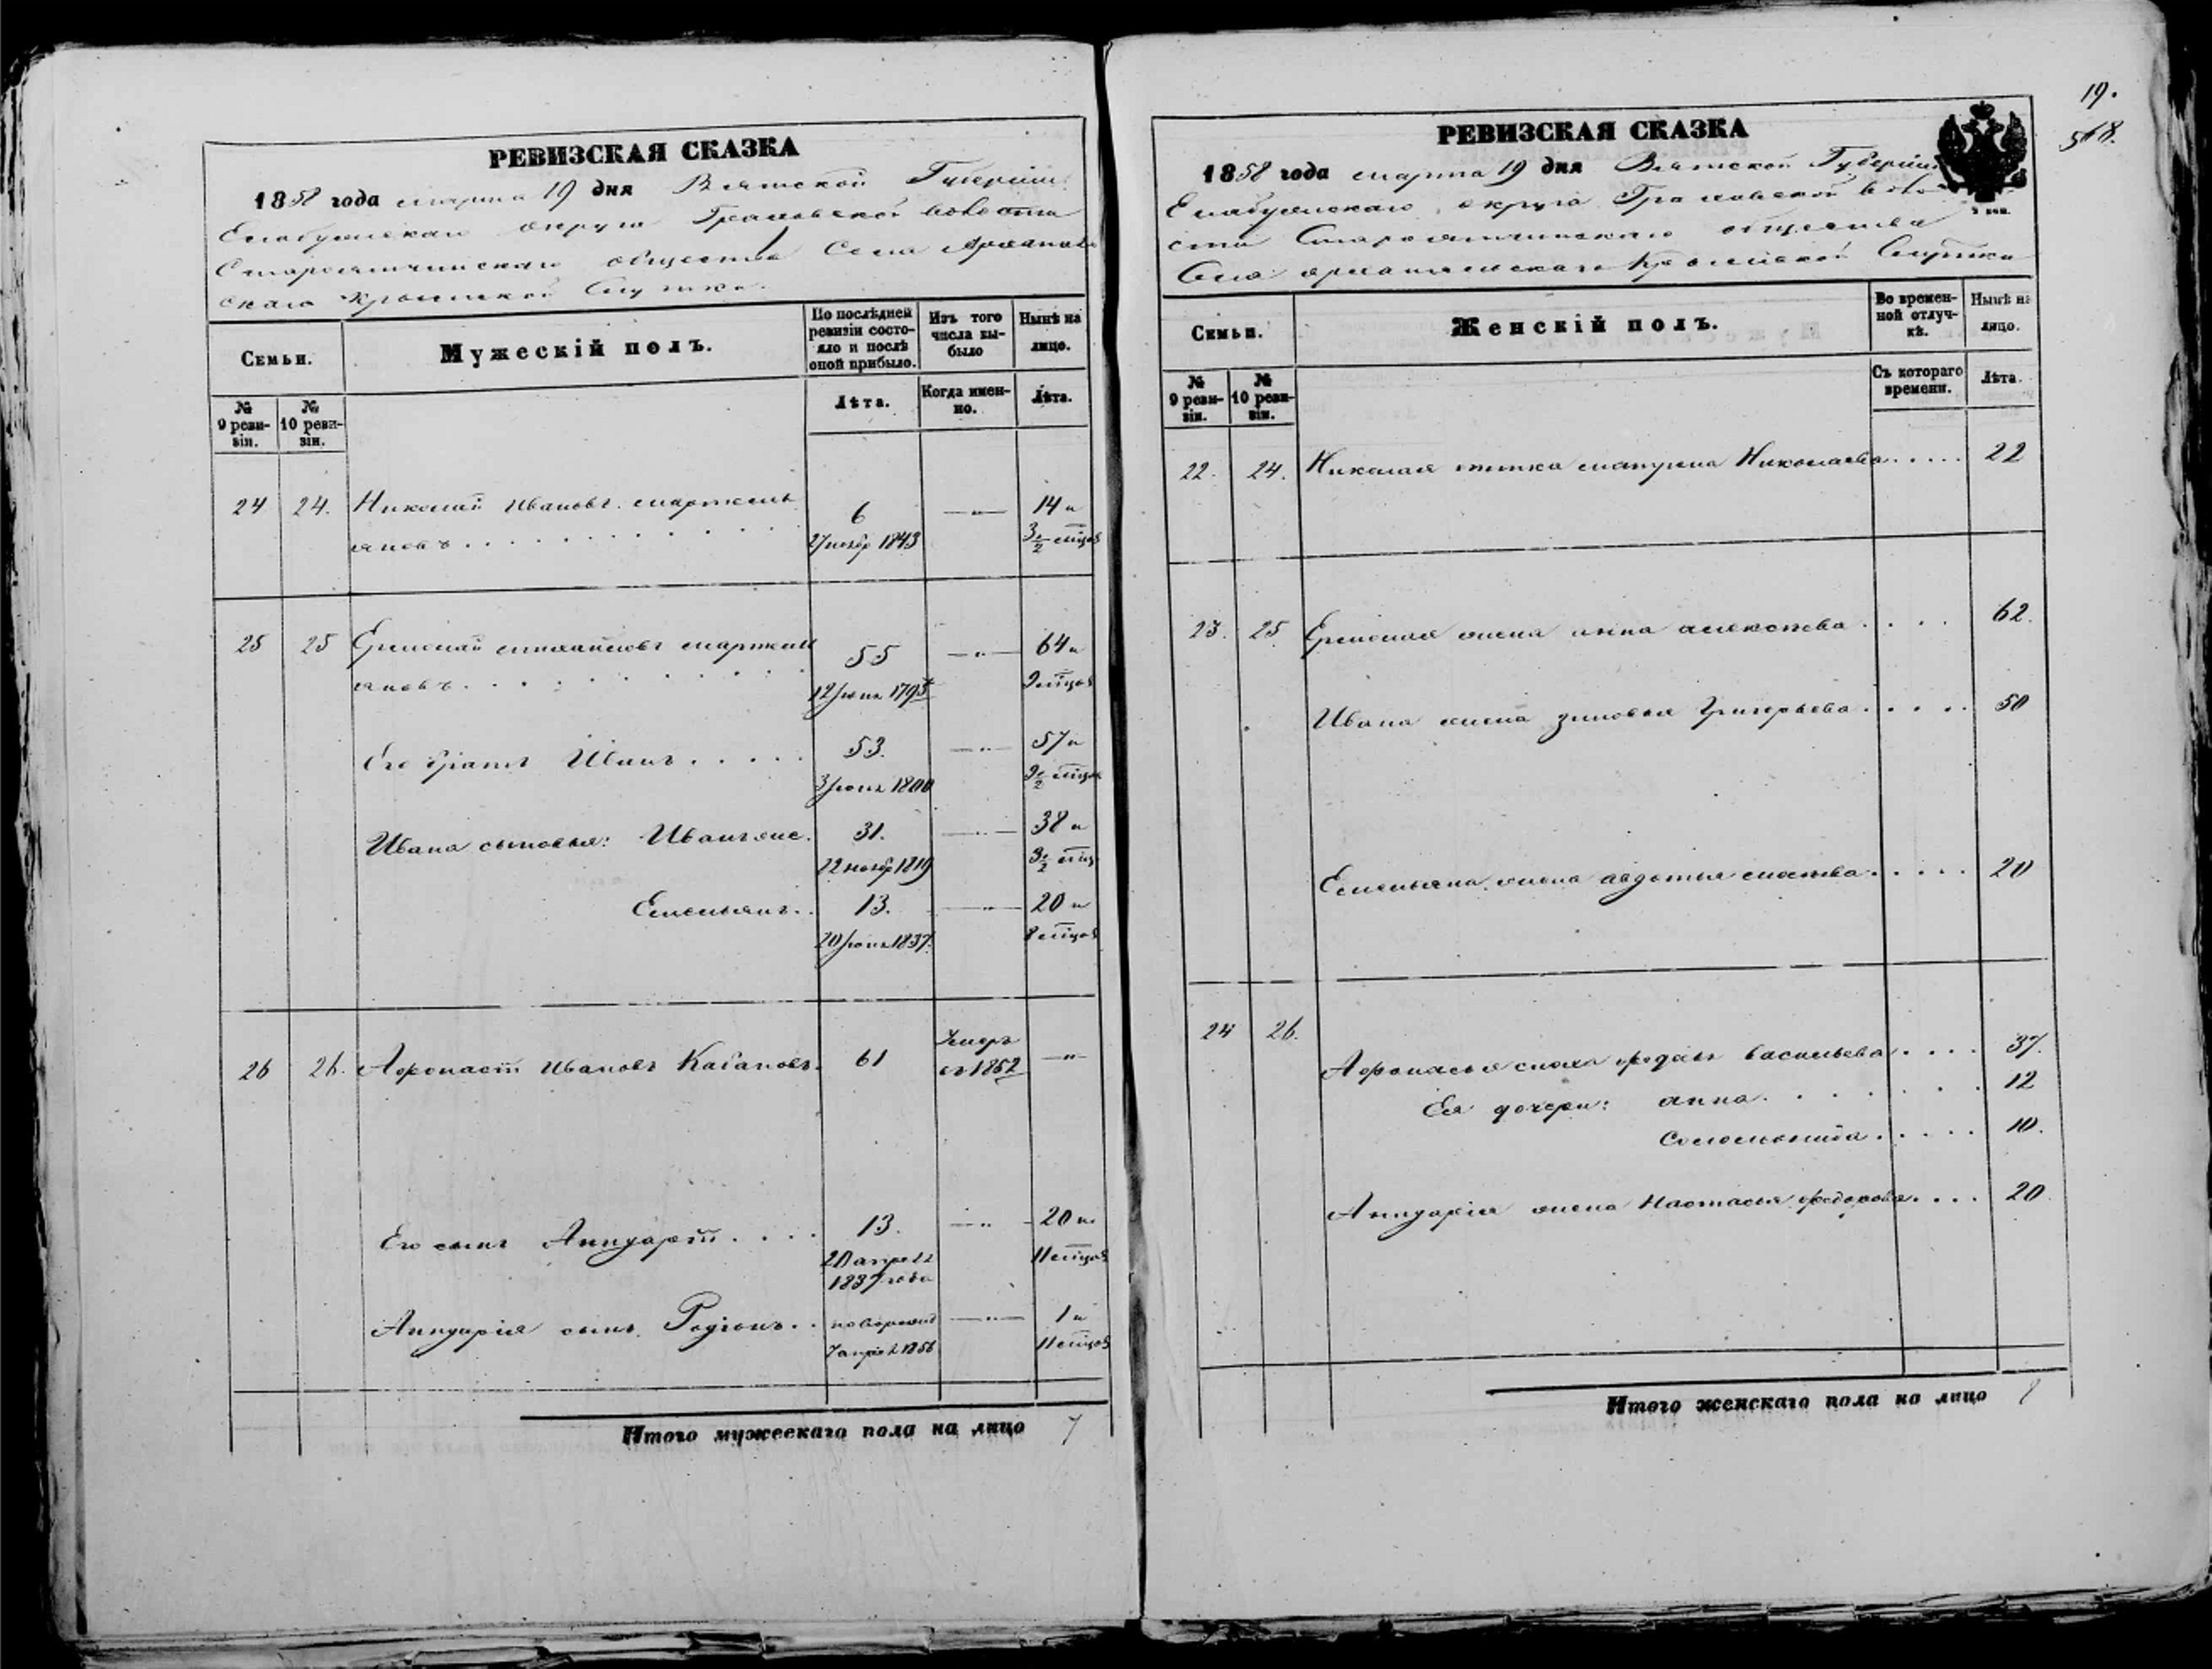 РЕВИЗСКАЯ СКАЗКА
1858 года марта 19 дня Вятской Губернии
Елабужскаго округа Граховской волости
Старо общества Села Архангель
скаго
Семьи.
Мужескій полъ.
По послѣдней ревизіи состояло и послѣ оной прибыло.
Изъ того числа выбыло
Нынѣ на лицо.
№ 9 ревизіи.
№ 10 ревизіи.
Лѣта.
Когда именно.
Лѣта.
24 24. Николай Ивановъ 6 —„— 14 и
27 ноябр 1843 3 ½ мцов
25 25 Ермолай Михайловъ 55 —„— 64 и
12 Июня 1793 9 мцов
Его братъ Иванъ . . . . . 53. —„— 57 и
3 Июня 1800 9 ½ мцов
Ивана сыновья: Иванъ же. 31. —„— 38 и
22 ноябр 1819 3 ½ мцов
Емельянъ. . 13. —„— 20 и
20 Июня 1837. 8 мцов
26 26. Афонасій Ивановъ Кабановъ. 61 Умеръ въ 1852 —„—
Его сынъ . . . . 13. —„— 20 и
20 апреля 1837 года 11 мцов
сынъ Родіонъ. . новорожд —„— 1 и
7 апрел 1856 11 мцов
Итого мужескаго пола на лицо 7
19.
568.
РЕВИЗСКАЯ СКАЗКА
1858 года марта 19 дня Вятской Губерніи
Елабужскаго округа Граховской воло
сти общества
Села Архангельскаго
2 коп.
Семьи.
Женскій полъ.
Во временной отлучкѣ.
Нынѣ на лицо.
№ 9 ревизіи.
№ 10 ревизіи.
Съ котораго времени.
Лѣта.
22. 24. Николая тетка Матрена Николаева . . . . . 22
23. 25 Ермолая жена анна алексѣева . . . . 62.
Ивана жена зиновья Григорьева . . . . . 50
Емельяна жена авдотья . . . . . 20
24 26. Афонасья сноха Васильева . . . . 37.
Ея дочери: анна. . . . . . . 12
Соломонида . . . . . 10.
жена Настасья Федорова. . . . 20
Итого женскаго пола на лицо